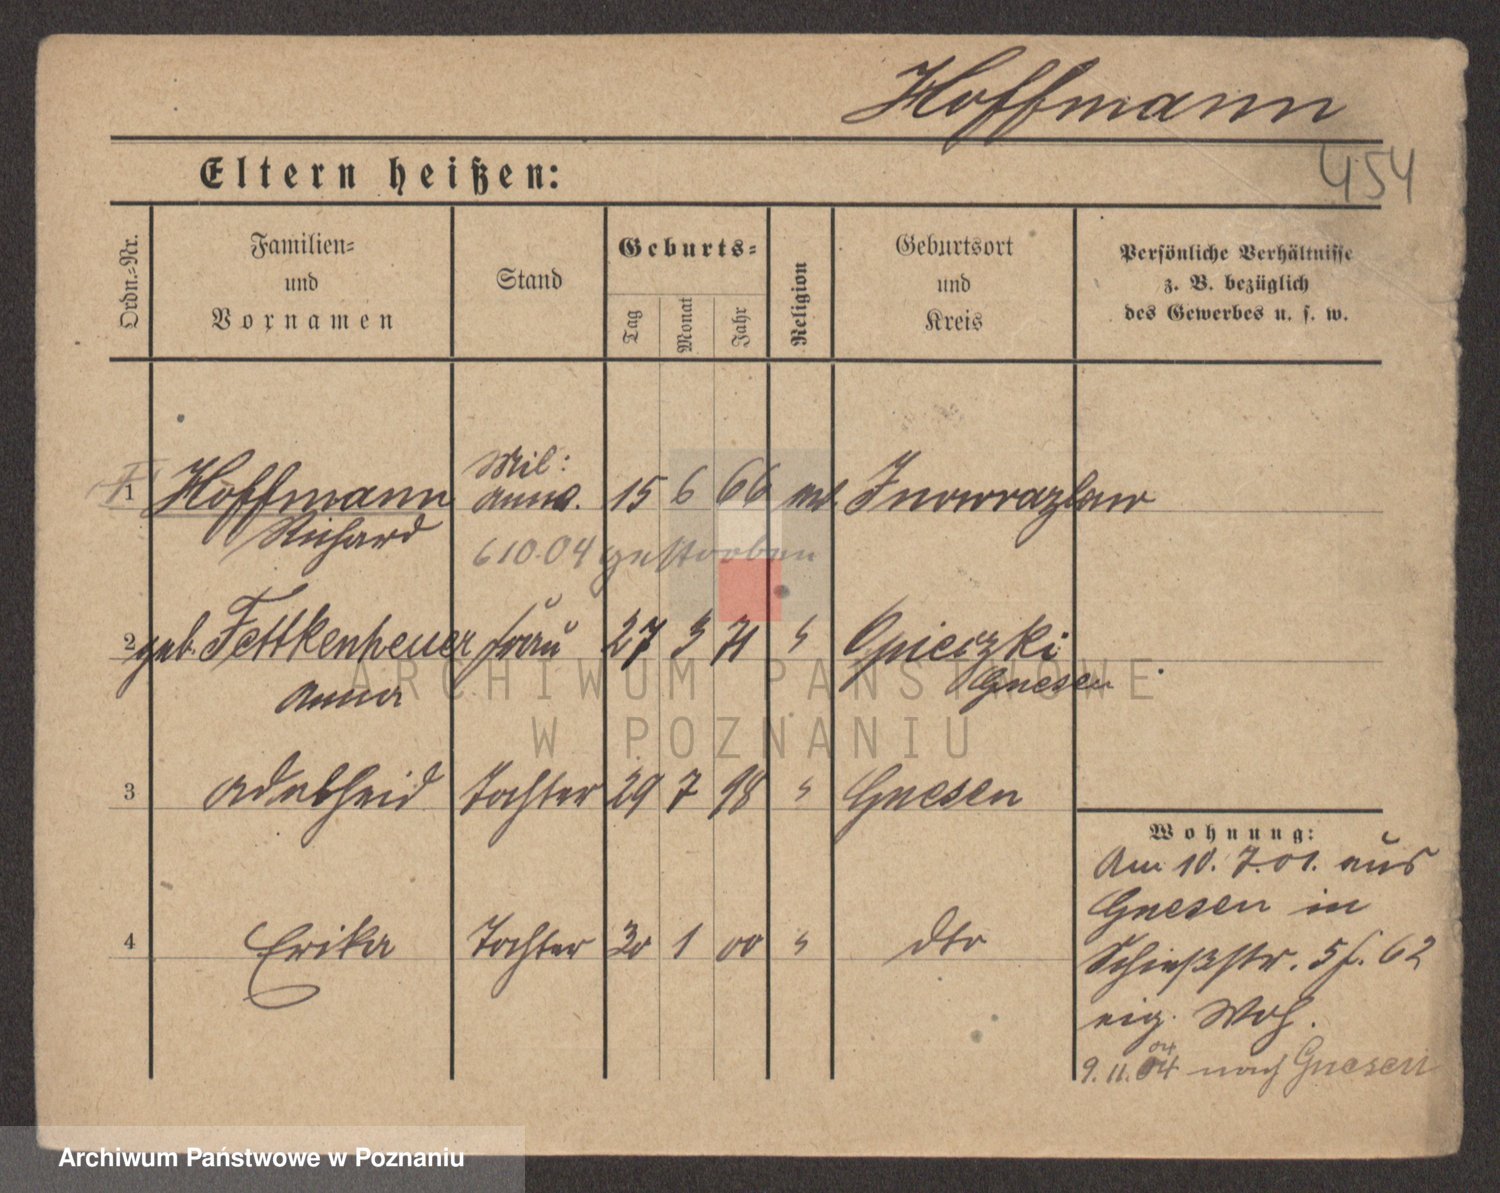 Hoffmann
454
Eltern heißen:
Ordn.-Nr.
Familien-
und
Vornamen
Stand
Geburts-
Tag
Monat
Jahr
Religion
Geburtsort
und
Kreis
Persönliche Verhältnisse
z. B. bezüglich
des Gewerbes u. s. w.
Mil:
1 Hoffmann Anw. 15 6 66 Inowrazlaw
Richard
6 10.04 gestorben
2 geb. Fettkenheuer Frau 27 3 71 " Opieczki
Anna Gnesen
3 Adelheid Tochter 29 7 98 " Gnesen
4 Erika Tochter 30 1 00 " dto
Wohnung:
Am 10. 7. 01. aus
Gnesen in
Schießstr. 5 f. 62
eig. Woh.
04
9. 11. 04 nach Gnesen
ARCHIWUM PAŃSTWOWE
W POZNANIU
Archiwum Państwowe w Poznaniu